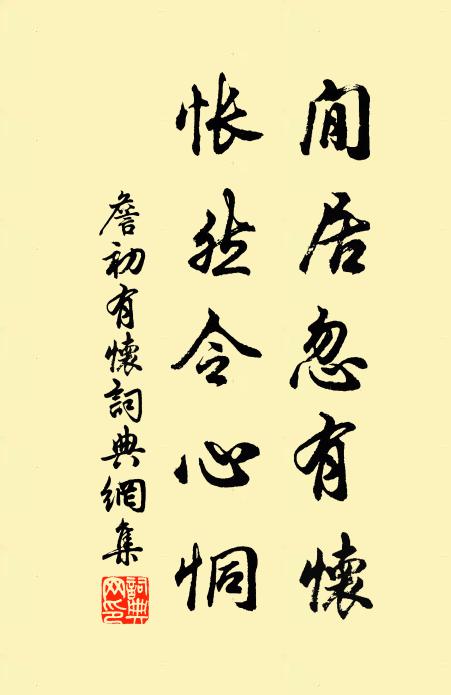 閒居忽有懷
怅然令心恫
詹初有懷詞典網集
詞典
网印